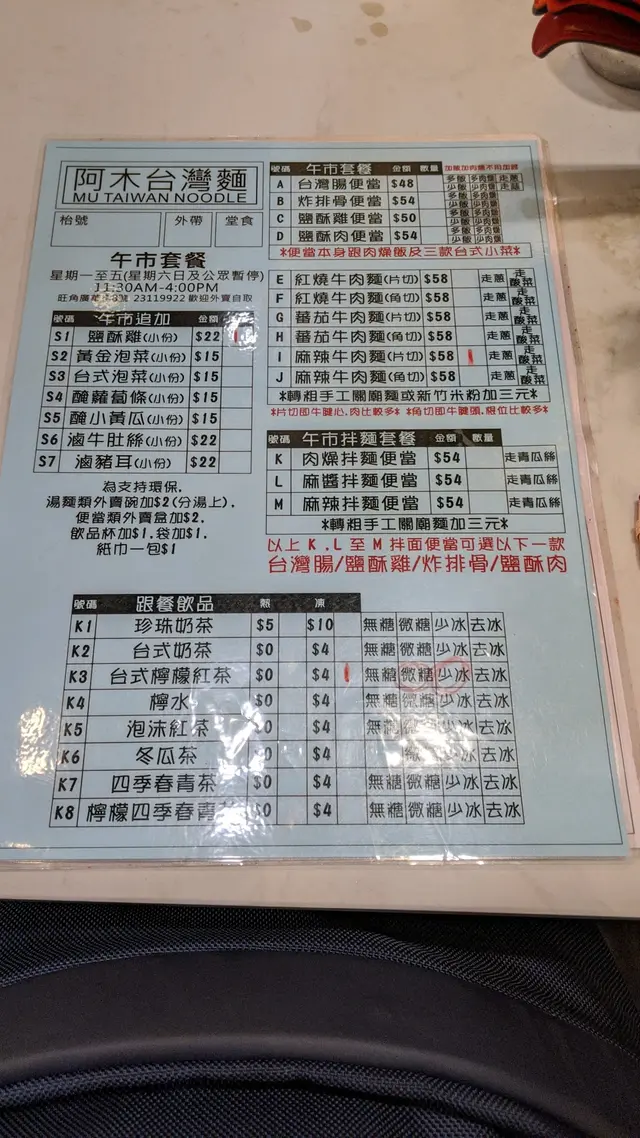 阿木台灣麵
MU TAIWAN NOODLE
枱號 外帶 堂食
午市套餐
星期一至五(星期六日及公眾暫停)
11:30AM-4:00PM
23119922 歡迎外賣自取
號碼 午市追加
S1 鹽酥雞(小份) $22
S2 黃金泡菜(小份) $15
S3 台式泡菜(小份) $15
S4 醃蘿蔔條(小份) $15
S5 醃小黃瓜(小份) $15
S6 滷牛肚絲(小份) $22
S7 滷豬耳(小份) $22
為支持環保.
湯麵類外賣碗加$2(分湯上).
便當類外賣盒加$2.
飲品杯加$1.袋加$1.
紙巾一包$1
號碼 午市套餐 金額 數量
A 台灣腸便當 $48
B 炸排骨便當 $54
C 鹽酥雞便當 $50
D 鹽酥肉便當 $54
*便當本身跟肉燥飯及三款台式小菜*
E 紅燒牛肉麵(片切) $58 走蔥 走酸菜
F 紅燒牛肉麵(角切) $58 走蔥 走酸菜
G 蕃茄牛肉麵(片切) $58 走蔥 走酸菜
H 蕃茄牛肉麵(角切) $58 走蔥 走酸菜
I 麻辣牛肉麵(片切) $58 走蔥 走酸菜
J 麻辣牛肉麵(角切) $58 走蔥 走酸菜
*轉粗手工關廟麵或新竹米粉加三元*
*片切即牛腱心,肉比較多* *角切即牛腱頭,根位比較多*
號碼 午市拌麵套餐 金額 數量
K 肉燥拌麵便當 $54 走青瓜絲
L 麻醬拌麵便當 $54 走青瓜絲
M 麻辣拌麵便當 $54 走青瓜絲
*轉粗手工關廟麵加三元*
以上 K .L 至 M 拌面便當可選以下一款
台灣腸/鹽酥雞/炸排骨/鹽酥肉
號碼 跟餐飲品 熱 凍
K1 珍珠奶茶 $5 $10 無糖 微糖 少冰 去冰
K2 台式奶茶 $0 $4 無糖 微糖 少冰 去冰
K3 台式檸檬紅茶 $0 $4 無糖 微糖 少冰 去冰
K4 檸水 $0 $4 無糖 微糖 少冰 去冰
K5 泡沫紅茶 $0 $4 無糖 微糖 少冰 去冰
K6 冬瓜茶 $4 少冰 去冰
K7 四季春青茶 $0 $4 無糖 微糖 少冰 去冰
K8 檸檬四季春青茶 $0 $4 無糖 微糖 少冰 去冰